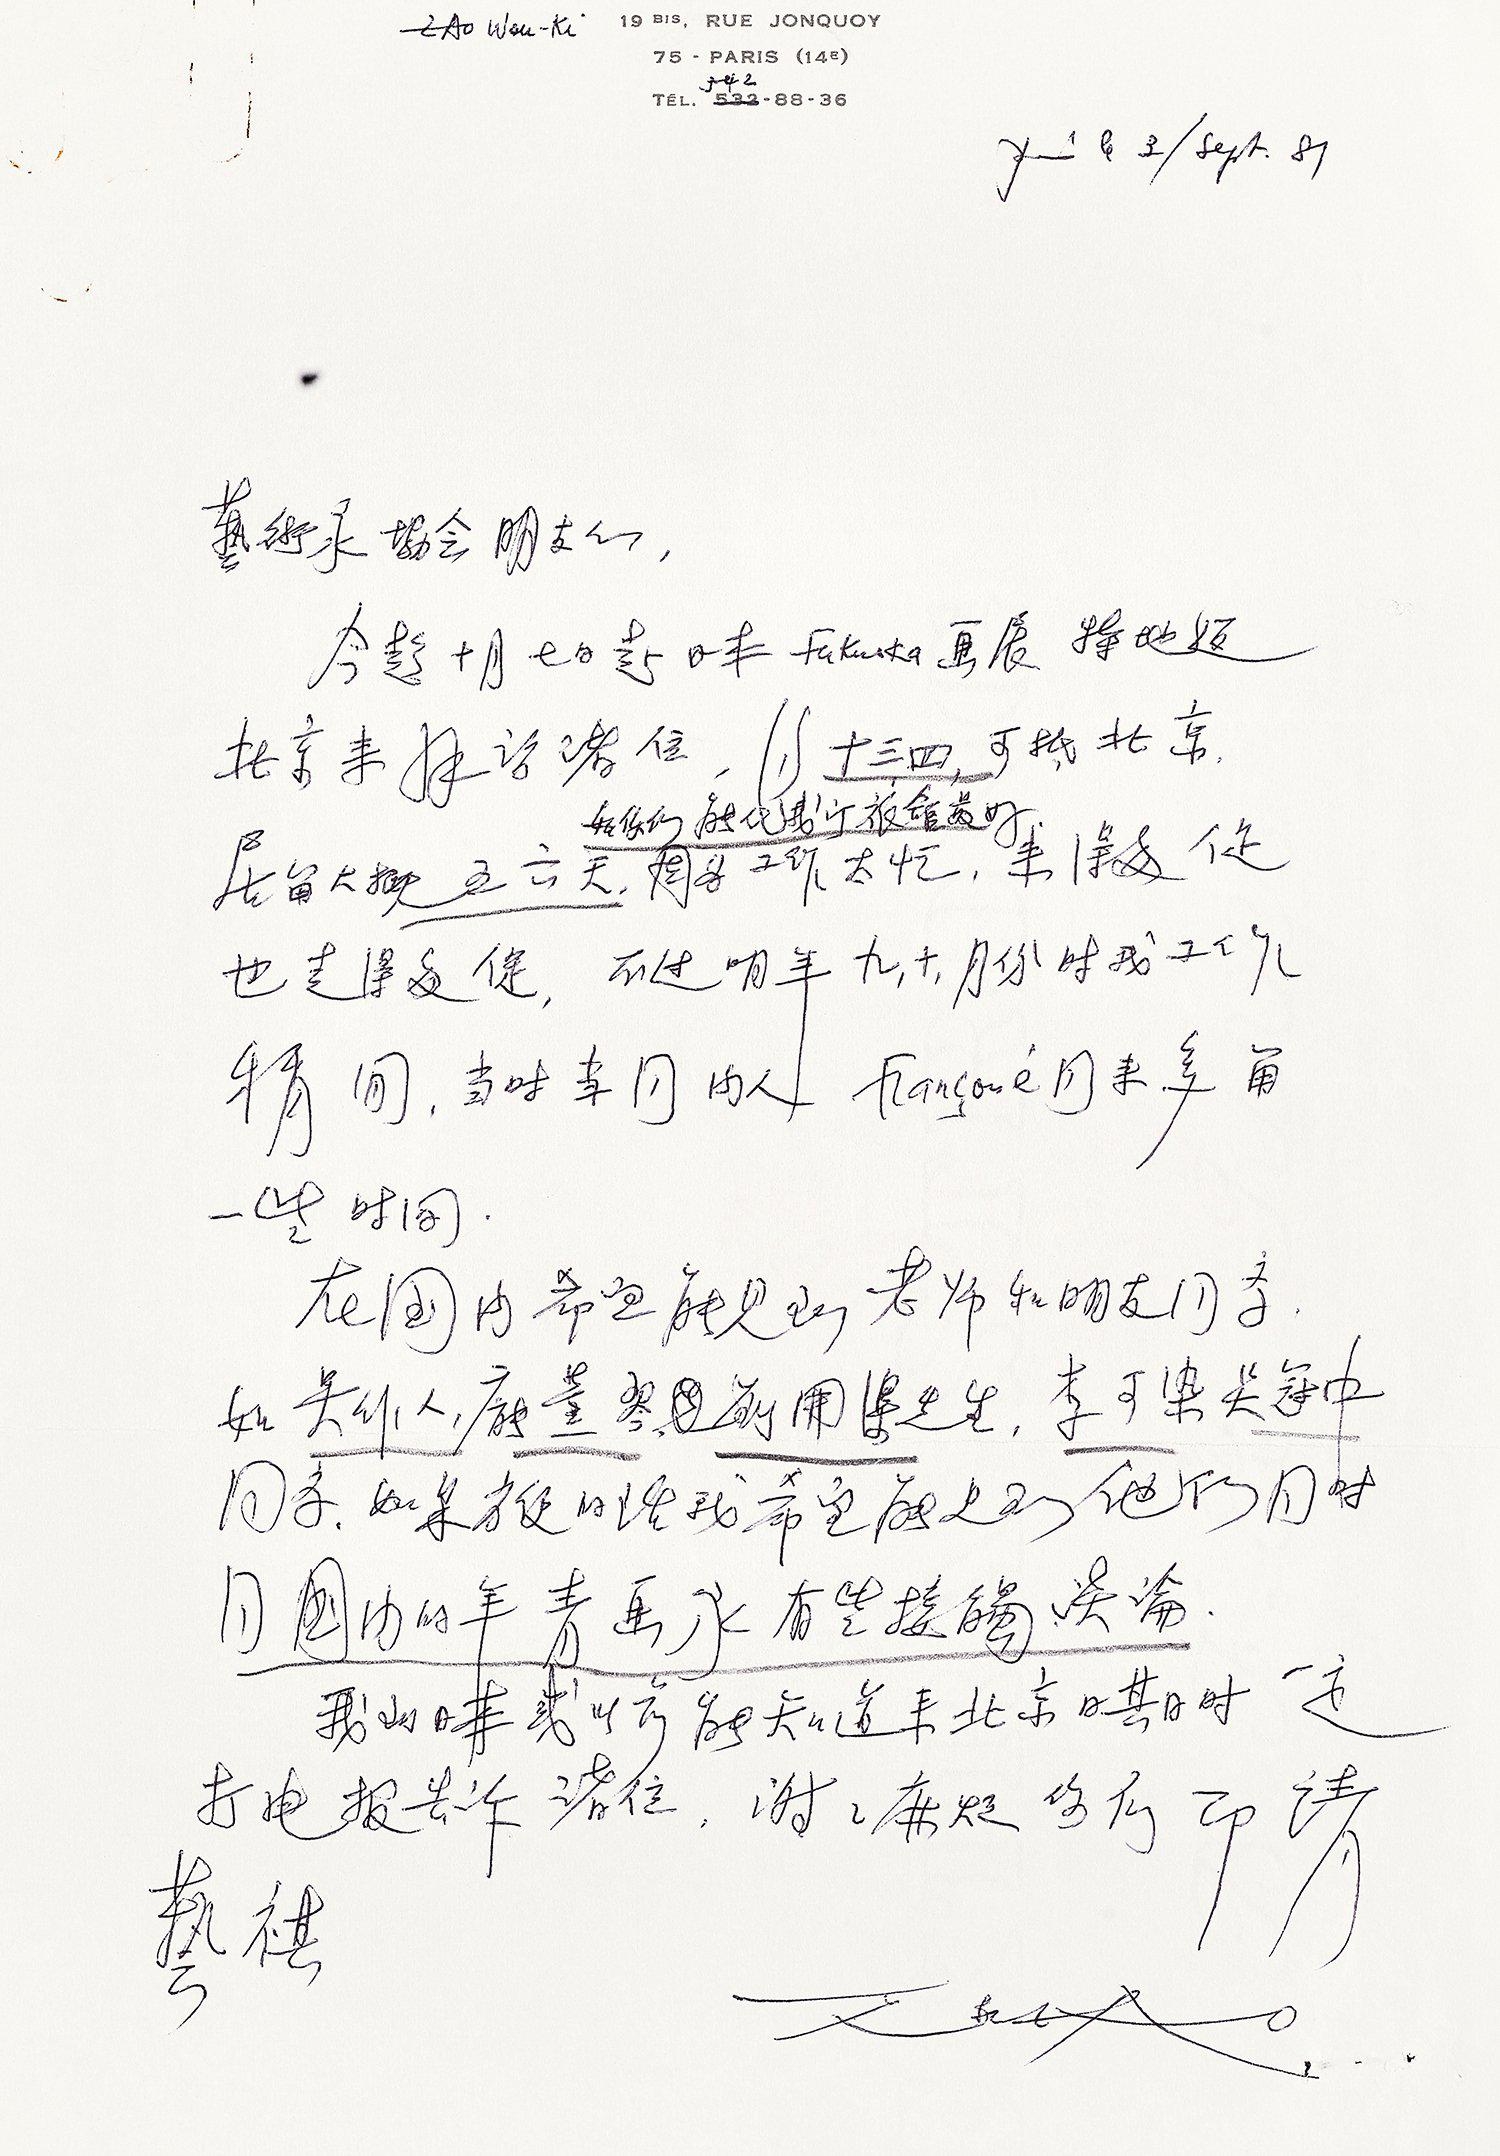 ZAO Wou-Ki 19 BIS, RUE JONQUOY
75 - PARIS (14E)
542
TÉL. 532-88-36
le 3/Sept. 81
藝術家協会朋友们,
今趁十月七日赴日本 Fukuoka 画展 特地返
北京来拜访诸位, 十三四, 可抵北京.
如你们能代我订旅馆最好
居留大概五六天, 因为工作太忙, 来得仓促
也走得仓促, 不过明年九, 十, 月份时我工作
稍闲, 当时幸同内人 Françoise 同来多留
一些时间.
在国内希望能见到老师和朋友同学.
如吴作人, 庞薰琹, 刘开渠先生, 李可染吴冠中
同学. 如果方便的话我希望能见到他们同时
同国内的年青画家有些接觸谈論.
我到日本或以前能知道来北京日期时一定
打电报告诉诸位, 谢谢麻烦你们 即请
藝祺
无极